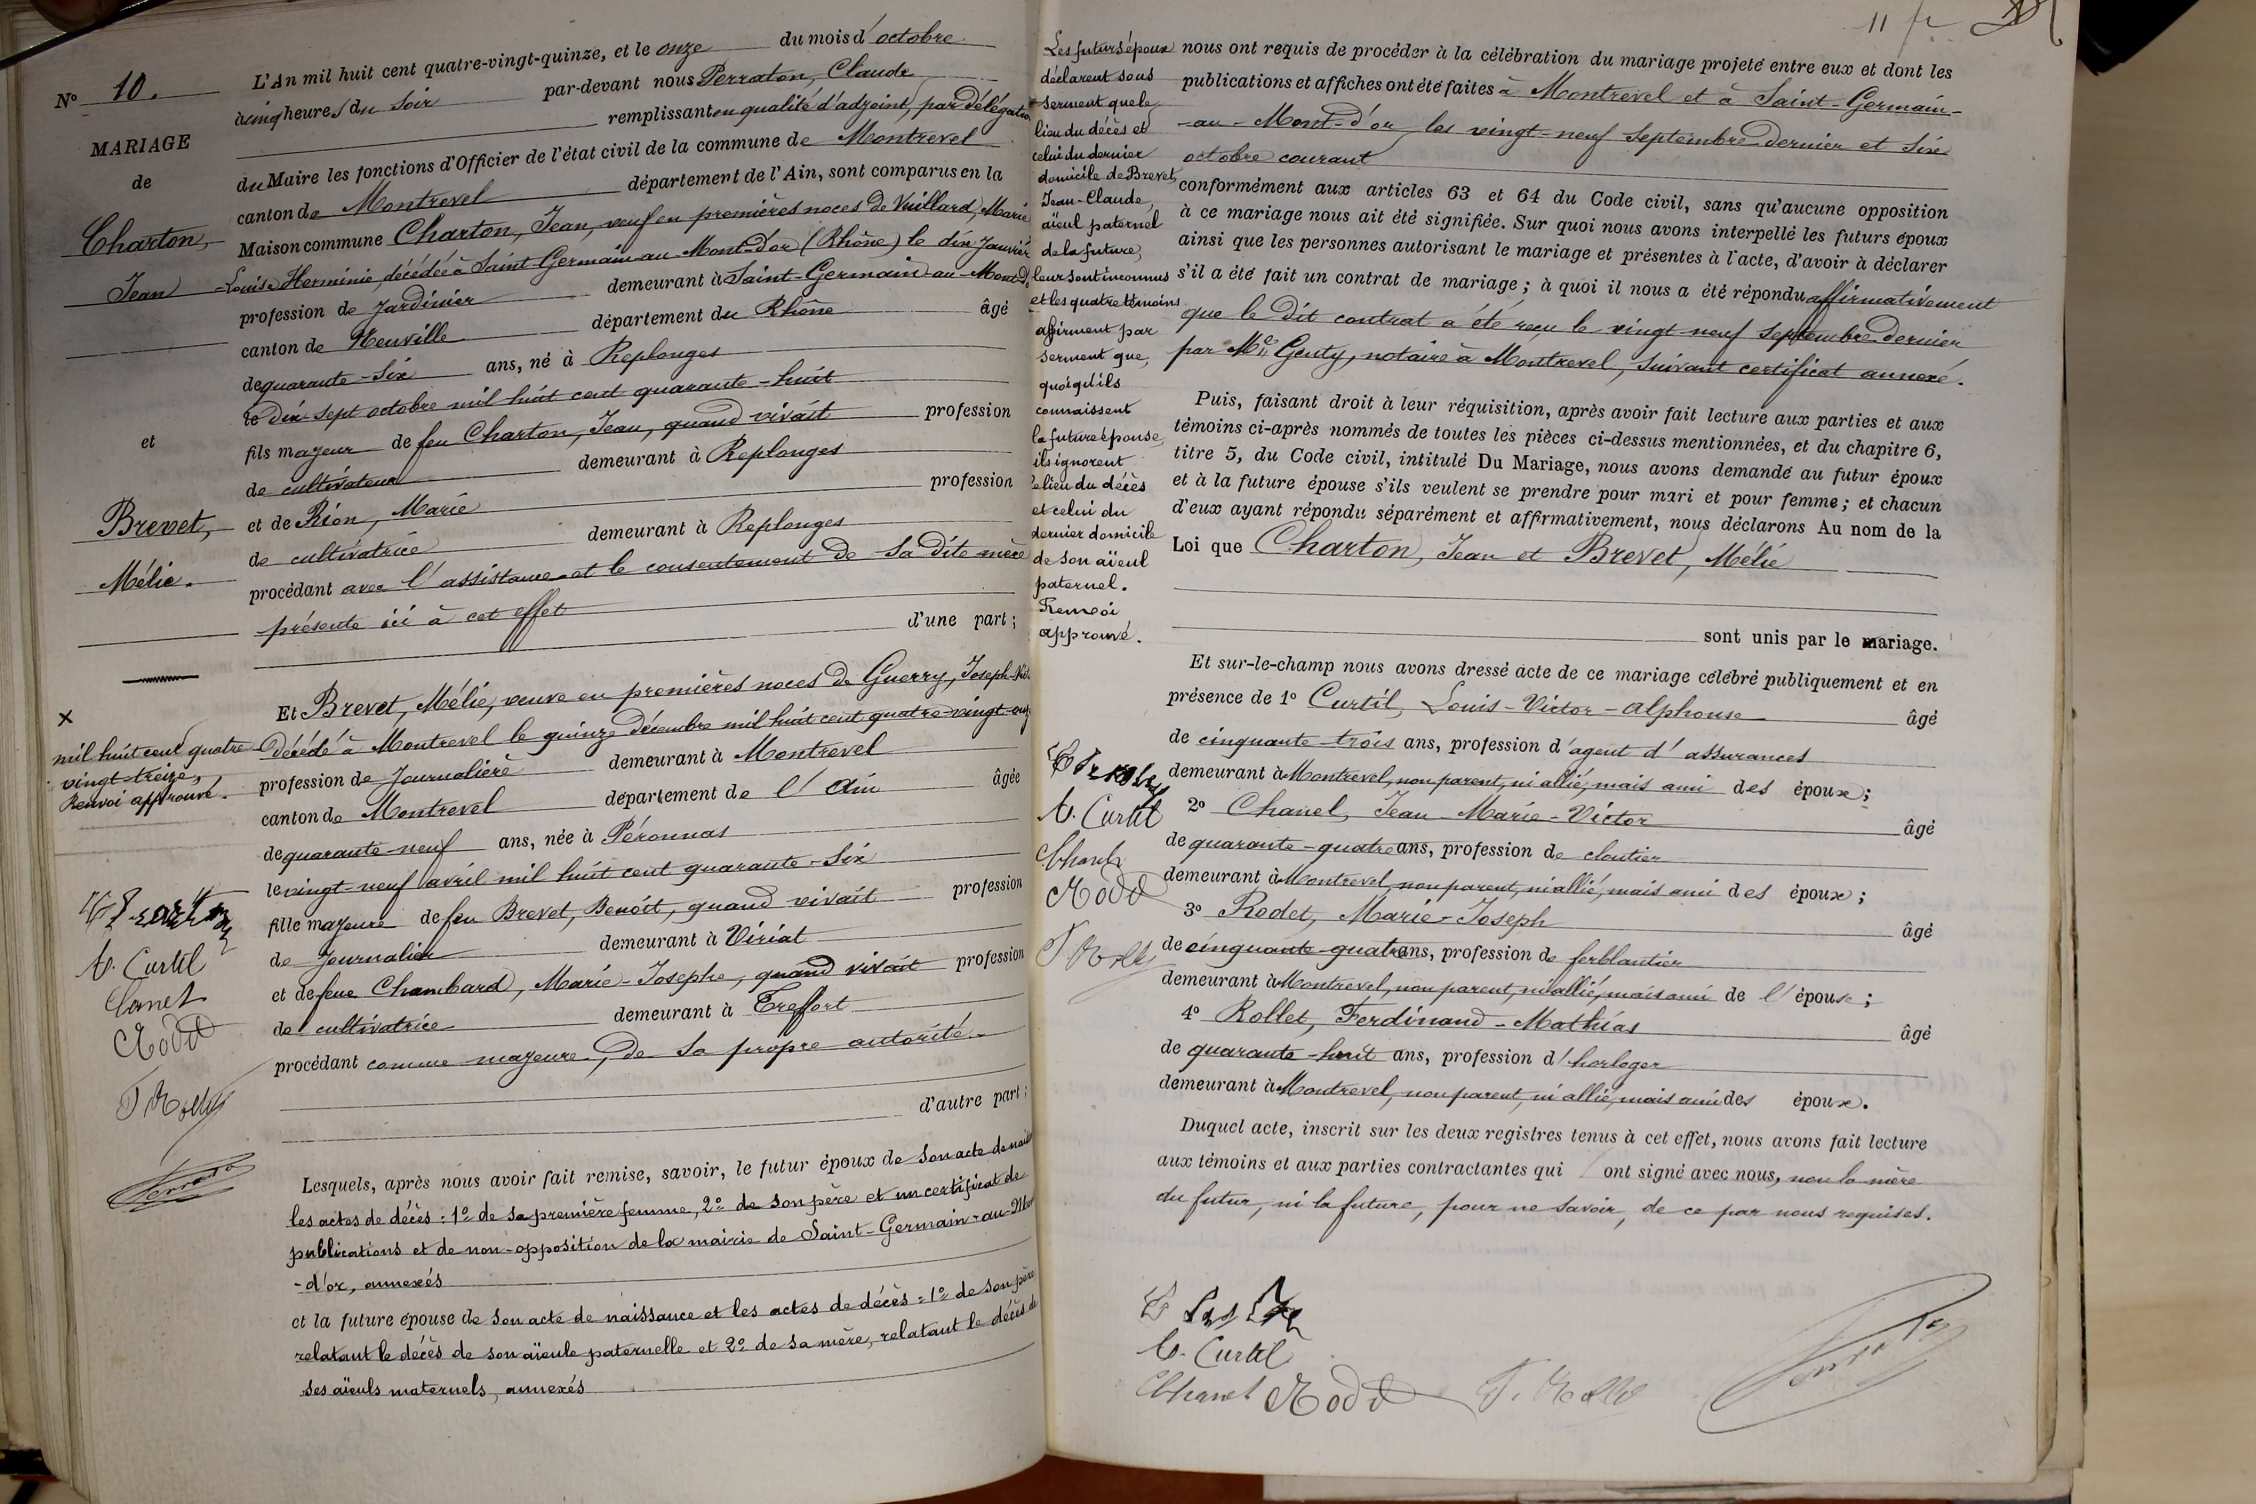 N° 10.
MARIAGE
de
Charton,
Jean
et
Brevet,
Mélie.
x
mil huit cent quatre
vingt-treize,
Renvoi approuvé.
V. Curtil
Chanel
Rodet
F. Rollet
L'An mil huit cent quatre-vingt-quinze, et le onze du mois d'octobre
à cinq heures du soir par-devant nous Perraton, Claude
remplissant en qualité d'adjoint, par délégation
du Maire les fonctions d'Officier de l'état civil de la commune de Montrevel
canton de Montrevel département de l'Ain, sont comparus en la
Maison commune Charton, Jean, veuf en premières noces de Vuillard, Marie
-Louise Herminie, décédée à Saint-Germain-au-Mont-d'or (Rhône) le dix Janvier
profession de Jardinier demeurant à Saint-Germain-au-Mont-d'
canton de Neuville département du Rhône âgé
de quarante-six ans, né à Replonges
le dix-sept octobre mil huit cent quarante-huit
fils majeur de feu Charton, Jean, quand vivait profession
de cultivateur demeurant à Replonges
et de Rion, Marie profession
de cultivatrice demeurant à Replonges
procédant avec l'assistance et le consentement de sa dite mère
présente ici à cet effet
d'une part;
Et Brevet, Mélie, veuve en premières noces de Guerry, Joseph
décédé à Montrevel le quinze décembre mil huit cent quatre-vingt-onze
profession de Journalière demeurant à Montrevel
canton de Montrevel département de l'Ain âgée
de quarante-neuf ans, née à Péronnas
le vingt-neuf avril mil huit cent quarante-six
fille majeure de feu Brevet, Benoît, quand vivait profession
de Journalier demeurant à Viriat
et de feue Chambard, Marie-Josephe, quand vivait profession
de cultivatrice demeurant à Treffort
procédant comme majeure, de sa propre autorité.
d'autre part;
Lesquels, après nous avoir fait remise, savoir, le futur époux de son acte de nais
les actes de décès: 1° de sa première femme, 2° de son père et un certificat de
publications et de non-opposition de la mairie de Saint-Germain-au-Mont
-d'or, annexés
et la future épouse de son acte de naissance et les actes de décès: 1° de son père
relatant le décès de son aïeule paternelle et 2° de sa mère, relatant le décès de
ses aïeuls maternels, annexés
11
Les futurs époux
déclarent sous
serment que le
lieu du décès et
celui du dernier
domicile de Brevet,
Jean-Claude,
aïeul paternel
de la future,
leur sont inconnus
et les quatre témoins
affirment par
serment que,
quoiqu'ils
connaissent
la future épouse,
ils ignorent
le lieu du décès
et celui du
dernier domicile
de son aïeul
paternel.
Renvoi
approuvé.
V. Curtil
Chanel
Rodet
F. Rollet
nous ont requis de procéder à la célébration du mariage projeté entre eux et dont les
publications et affiches ont été faites à Montrevel et à Saint-Germain-
-au-Mont-d'or, les vingt-neuf septembre dernier et six
octobre courant
conformément aux articles 63 et 64 du Code civil, sans qu'aucune opposition
à ce mariage nous ait été signifiée. Sur quoi nous avons interpellé les futurs époux
ainsi que les personnes autorisant le mariage et présentes à l'acte, d'avoir à déclarer
s'il a été fait un contrat de mariage; à quoi il nous a été répondu affirmativement
que le dit contrat a été reçu le vingt-neuf septembre dernier
par Me Genty, notaire à Montrevel, suivant certificat annexé.
Puis, faisant droit à leur réquisition, après avoir fait lecture aux parties et aux
témoins ci-après nommés de toutes les pièces ci-dessus mentionnées, et du chapitre 6,
titre 5, du Code civil, intitulé Du Mariage, nous avons demandé au futur époux
et à la future épouse s'ils veulent se prendre pour mari et pour femme; et chacun
d'eux ayant répondu séparément et affirmativement, nous déclarons Au nom de la
Loi que Charton, Jean et Brevet, Mélie
sont unis par le mariage.
Et sur-le-champ nous avons dressé acte de ce mariage célébré publiquement et en
présence de 1° Curtil, Louis-Victor-Alphonse âgé
de cinquante-trois ans, profession d'agent d'assurances
demeurant à Montrevel, non parent, ni allié, mais ami des époux;
2° Chanel, Jean-Marie-Victor âgé
de quarante-quatre ans, profession de cloutier
demeurant à Montrevel, non parent, ni allié, mais ami des époux;
3° Rodet, Marie-Joseph âgé
de cinquante-quatre ans, profession de ferblantier
demeurant à Montrevel, non parent, ni allié, mais ami de l'épouse;
4° Rollet, Ferdinand-Mathias âgé
de quarante-huit ans, profession d'horloger
demeurant à Montrevel, non parent, ni allié, mais ami des époux.
Duquel acte, inscrit sur les deux registres tenus à cet effet, nous avons fait lecture
aux témoins et aux parties contractantes qui ont signé avec nous, non la mère
du futur, ni la future, pour ne savoir, de ce par nous requises.
V. Curtil
Chanel Rodet F. Rollet